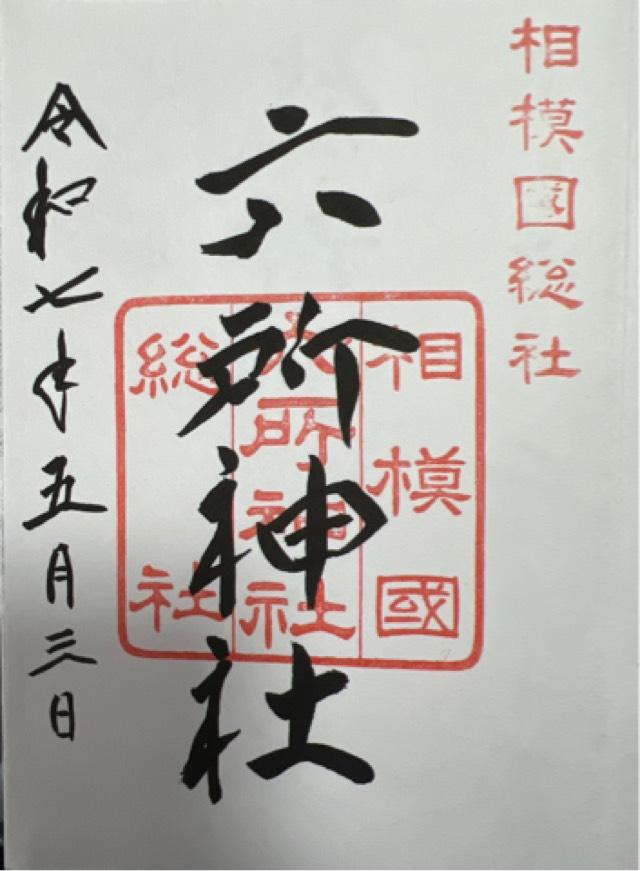 相模國総社
六所神社
相模國
六所神社
総社
令和七年五月三日